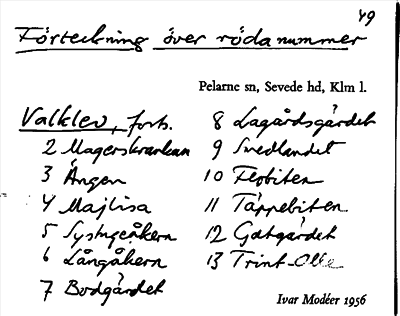 49
Förteckning över röda nummer
Pelarne sn, Sevede hd, Klm l.
Valklev, forts.
2 Magerskrankan
3 Ängen
4 Majlisa
5 Systugeåkern
6 Långåkern
7 Bodgärdet
8 Lagårdsgärdet
9 Svedlandet
10 Flobiten
11 Täppebiten
12 Gatgärdet
13 Trint-Olle
Ivar Modéer 1956